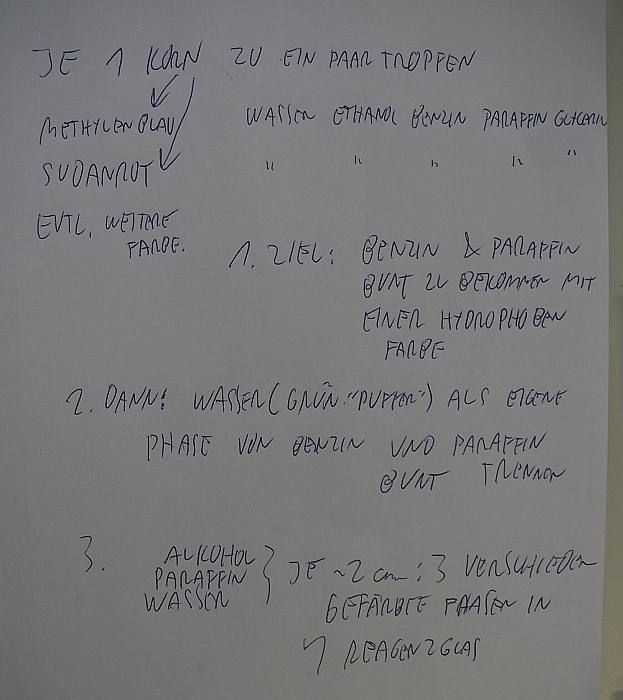 JE 1 KORN ZU EIN PAAR TROPFEN
METHYLENBLAU WASSER ETHANOL BENZIN PARAFFIN GLYCERIN
SUDANROT " " " " "
EVTL. WEITERE
FARBE.
1. ZIEL: BENZIN & PARAFFIN
BUNT ZU BEKOMMEN MIT
EINER HYDROPHOBEN
FARBE
2. DANN: WASSER (GRÜN. "PUFFER") ALS EIGENE
PHASE VON BENZIN UND PARAFFIN
BUNT TRENNEN
3. ALKOHOL
PARAFFIN
WASSER
JE ~2 cm: 3 VERSCHIEDEN
GEFÄRBTE PHASEN IN
1 REAGENZGLAS